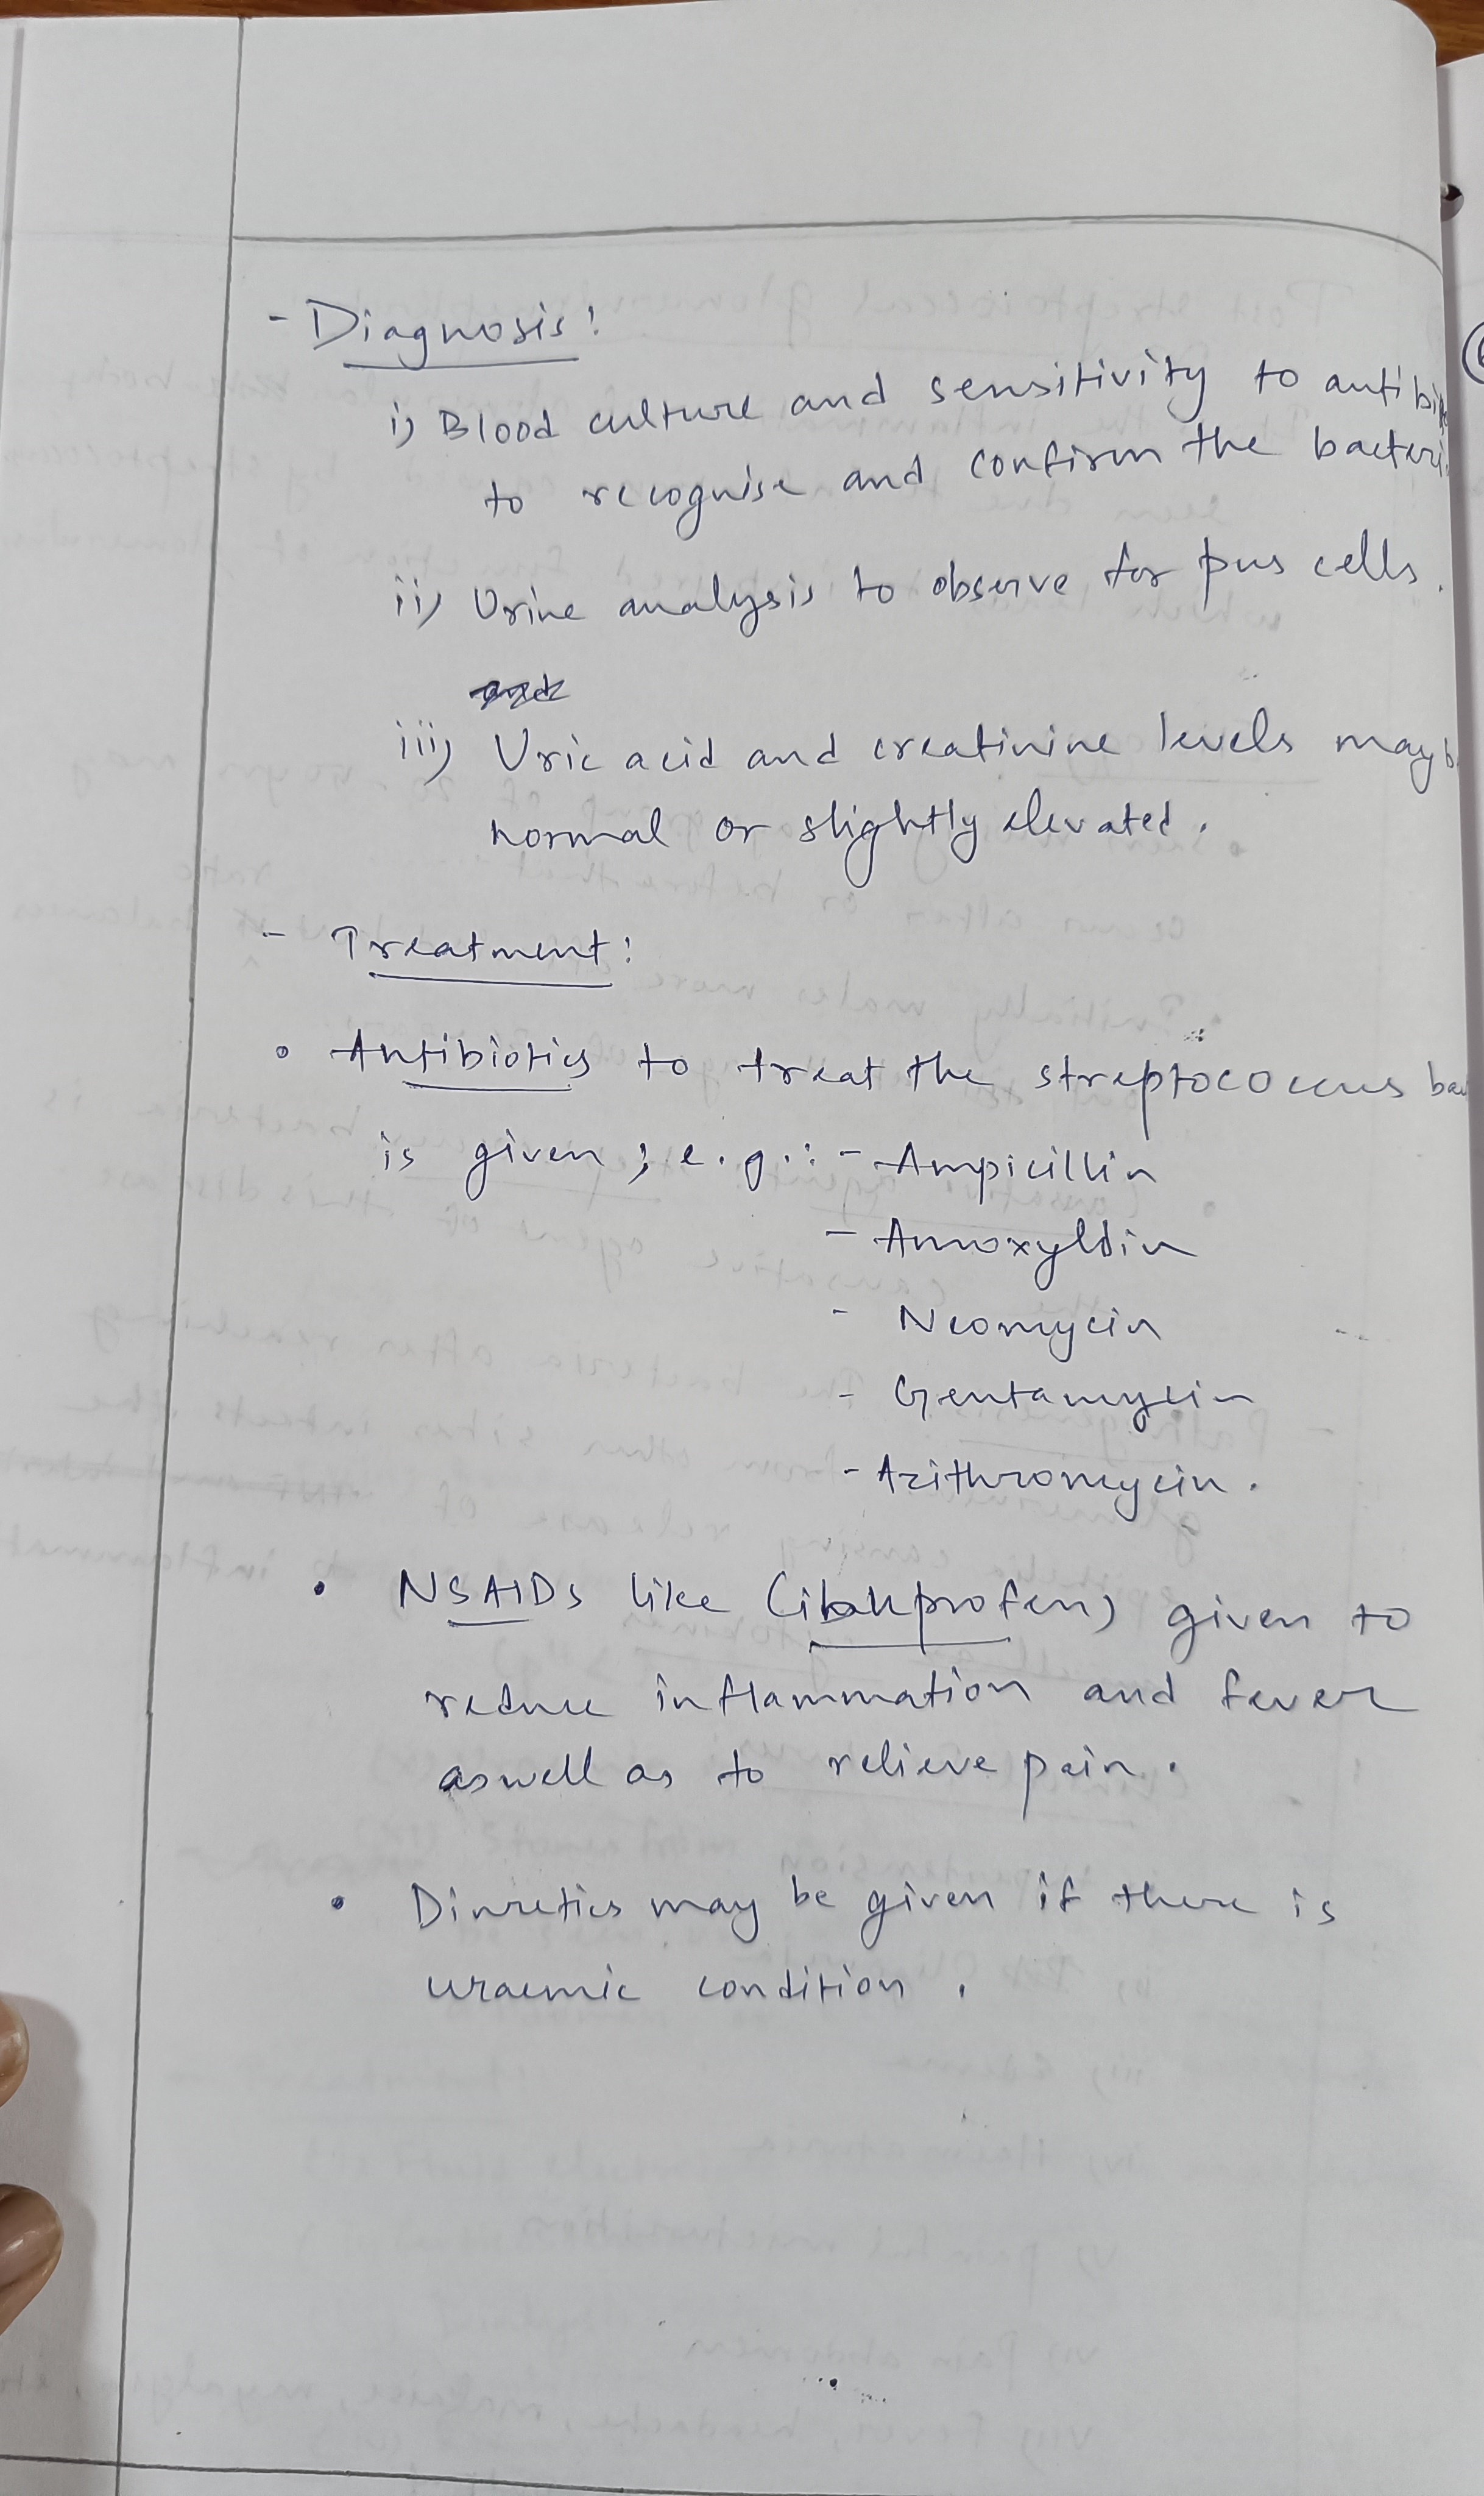 - Diagnosis:
i) Blood culture and sensitivity to antibi
to recognise and confirm the bacteri
ii) Urine analysis to observe for pus cells.
iii) Uric acid and creatinine levels may b
normal or slightly elevated.
- Treatment:
• Antibiotics to treat the streptococcus ba
is given; e.g.: - Ampicillin
- Amoxyldin
- Neomycin
- Gentamycin
- Azithromycin.
• NSAIDs like (ibuprofen) given to
reduce inflammation and fever
aswell as to relieve pain.
• Diuretics may be given if there is
uraemic condition.